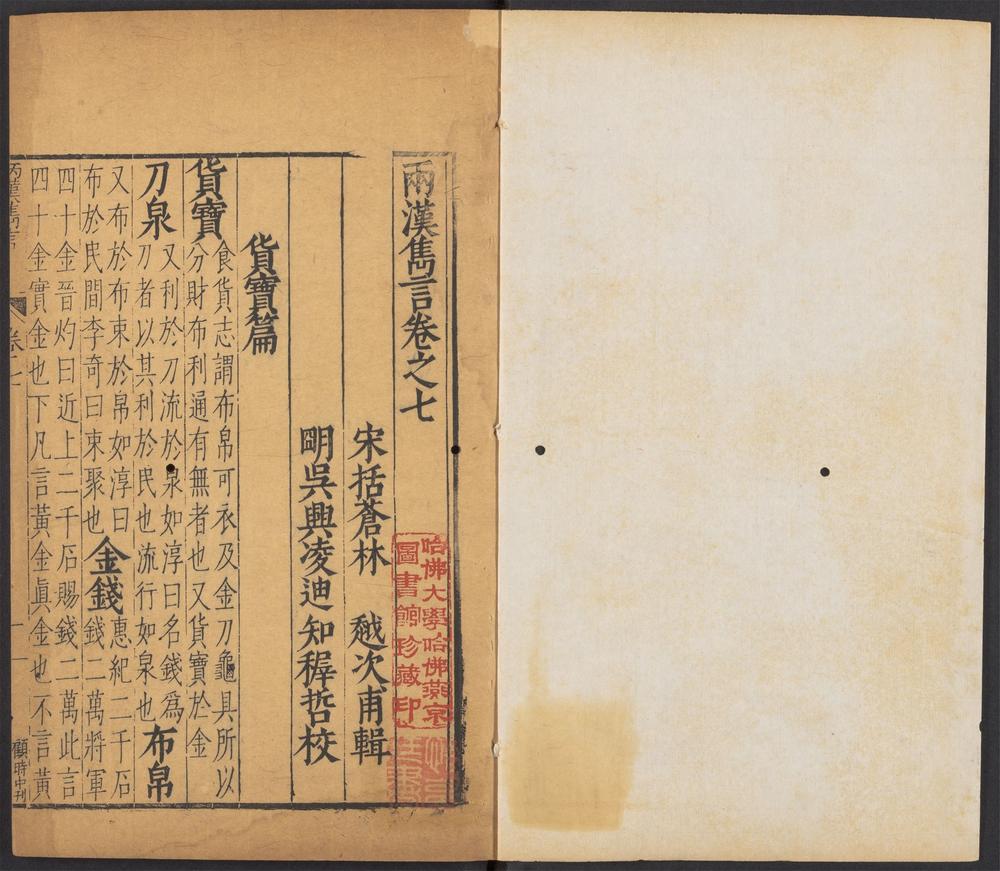 兩漢雋言卷之七
宋括蒼林　越次甫輯
明吳興凌迪知穉哲校
哈佛大學哈佛燕京
圖書館珍藏印
貨寶篇
貨寶食貨志謂布帛可衣及金刀龜貝所以
分財布利通有無者也又貨寶於金
刀泉又利於刀流於泉如淳曰名錢爲
刀者以其利於民也流行如泉也布帛
又布於布束於帛如淳曰
布於民間李奇曰束聚也金錢惠紀二千石
錢二萬將軍
四十金晉灼曰近上二千石賜錢二萬此言
四十金實金也下凡言黃金眞金也不言黃
兩漢雋言
卷七
一
顧時中刊